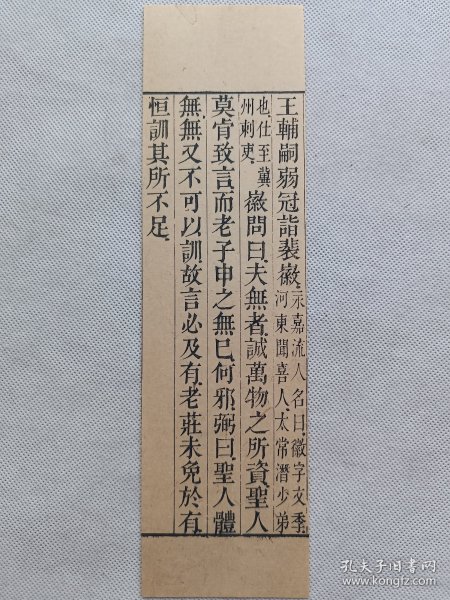 王輔嗣弱冠詣裴徽、永嘉流人名曰、徽字文季、河東聞喜人、太常潛少弟
也、仕至冀州刺史、徽問曰、夫無者、誠萬物之所資、聖人
莫肯致言、而老子申之無已、何邪、弼曰、聖人體
無、無又不可以訓、故言必及有、老莊未免於有、
恒訓其所不足、
孔夫子旧书网
www.kongfz.com